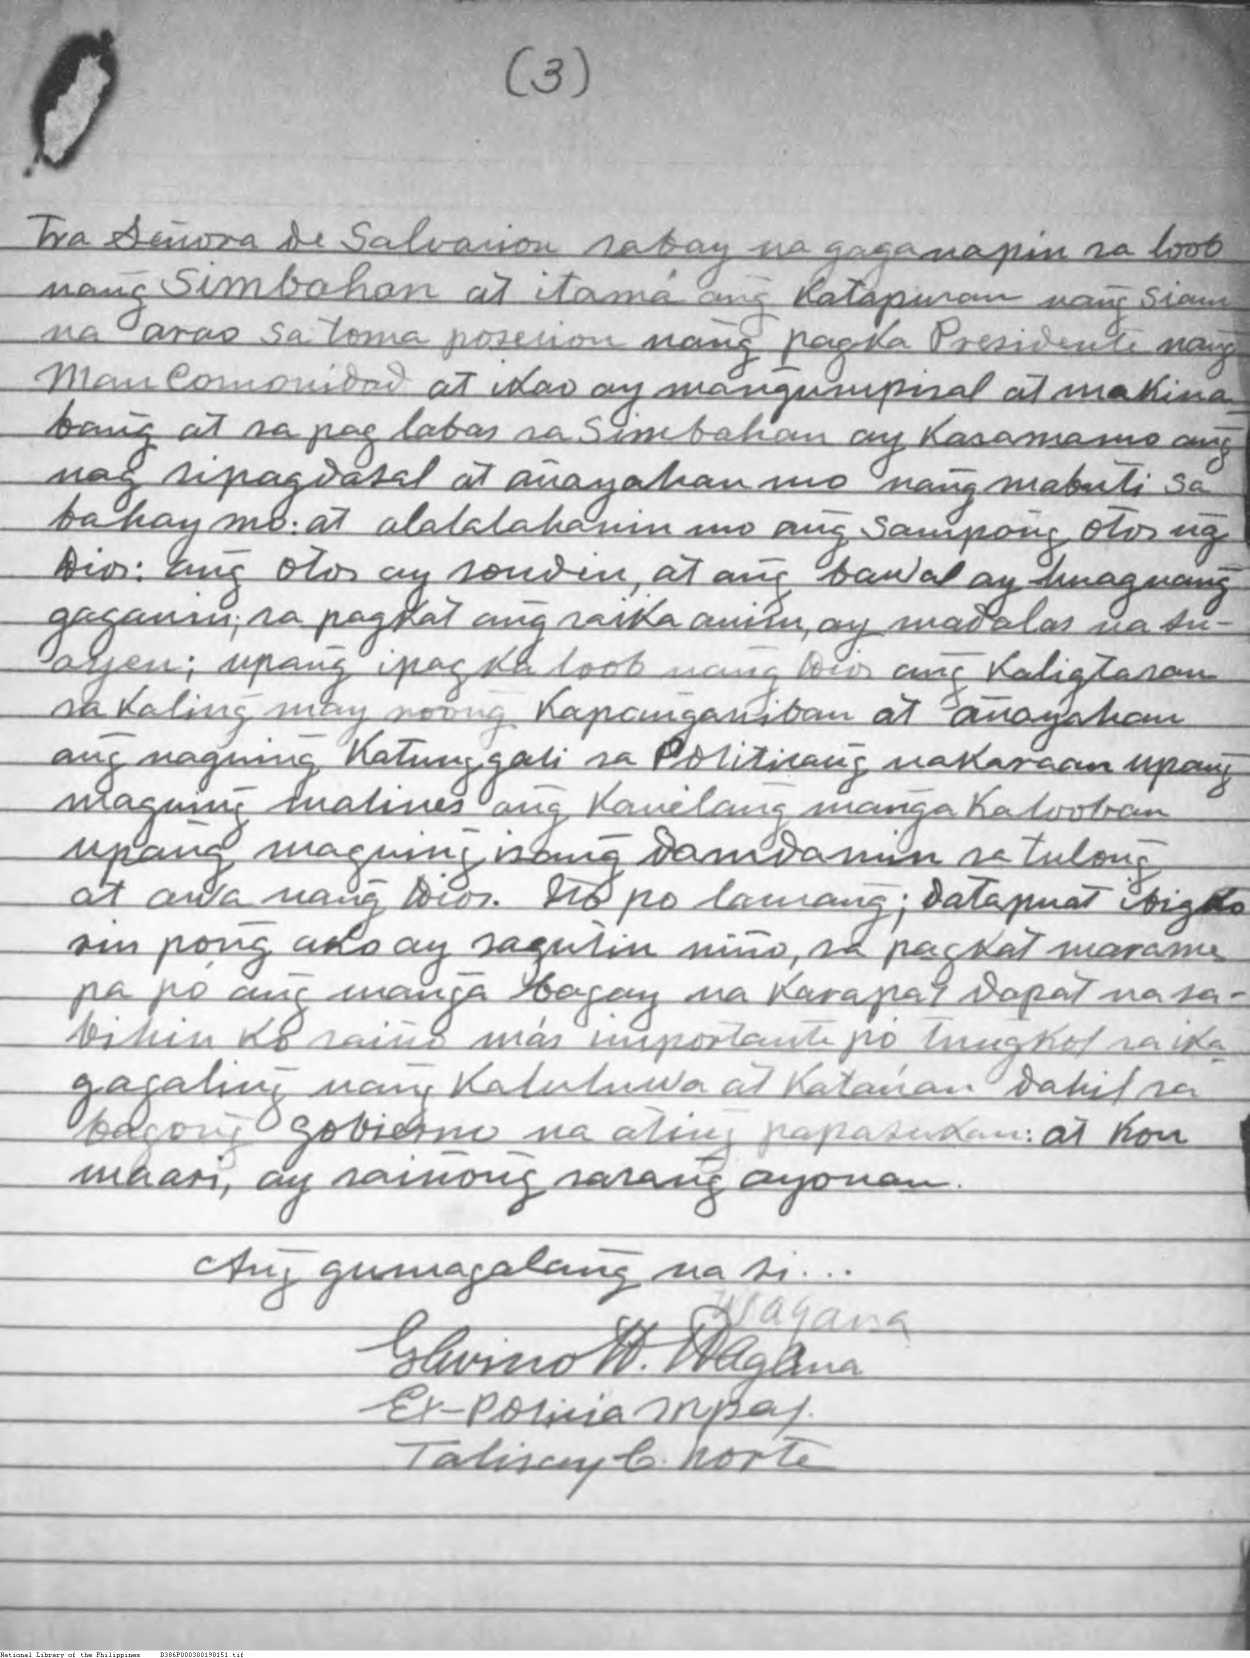 (3)
Tra Señora de Salvacion sabay na gaganapin sa loob
nang Simbahan at itamá ang Katapusan nang siam
na arao sa toma posecion nang pagka Presidente nang
Mancomonidad at ikao ay mangumpisal at makina
bang at sa pag labas sa Simbahan ay Kasamamo ang
nag sipagdasal at anayahan mo nang mabuti sa
bahay mo: at alalalahanin mo ang Sampong Otos ng
Dios: ang Otos ay sondin, at ang bawal ay huag nang
gaganin; sa pagkat ang saika anim, ay madalas na su-
ayen; upang ipag Ka loob nang Dios ang Kaligtasan
sa Kaling may roong Kapanganiban at anayahan
ang naguing Katunggali sa Politicang nakaraan upang
maguing malines ang Kanelang manga Kalooban
upang maguing isang damdamin sa tulong
at awa nang Dios. Ito po lamang; datapuat ibig ko
rin pong ako ay sagutin niño, sa pagkat marame
pa pó ang manga bagay na Karapat dapat na sa-
bihin Ko saiño más importante pó tungkol sa ika
gagaling nang Kaluluwa at Katauan dahil sa
bagong gobierno na ating papasukan: at kon
maari, ay sainong sarang ayonan.
Ang gumagalang na si...
Wagana
W. Wagana
Ex-Policia Mpal.
Talisay C. Norte
National Library of the Philippines B386P000300190151.tif